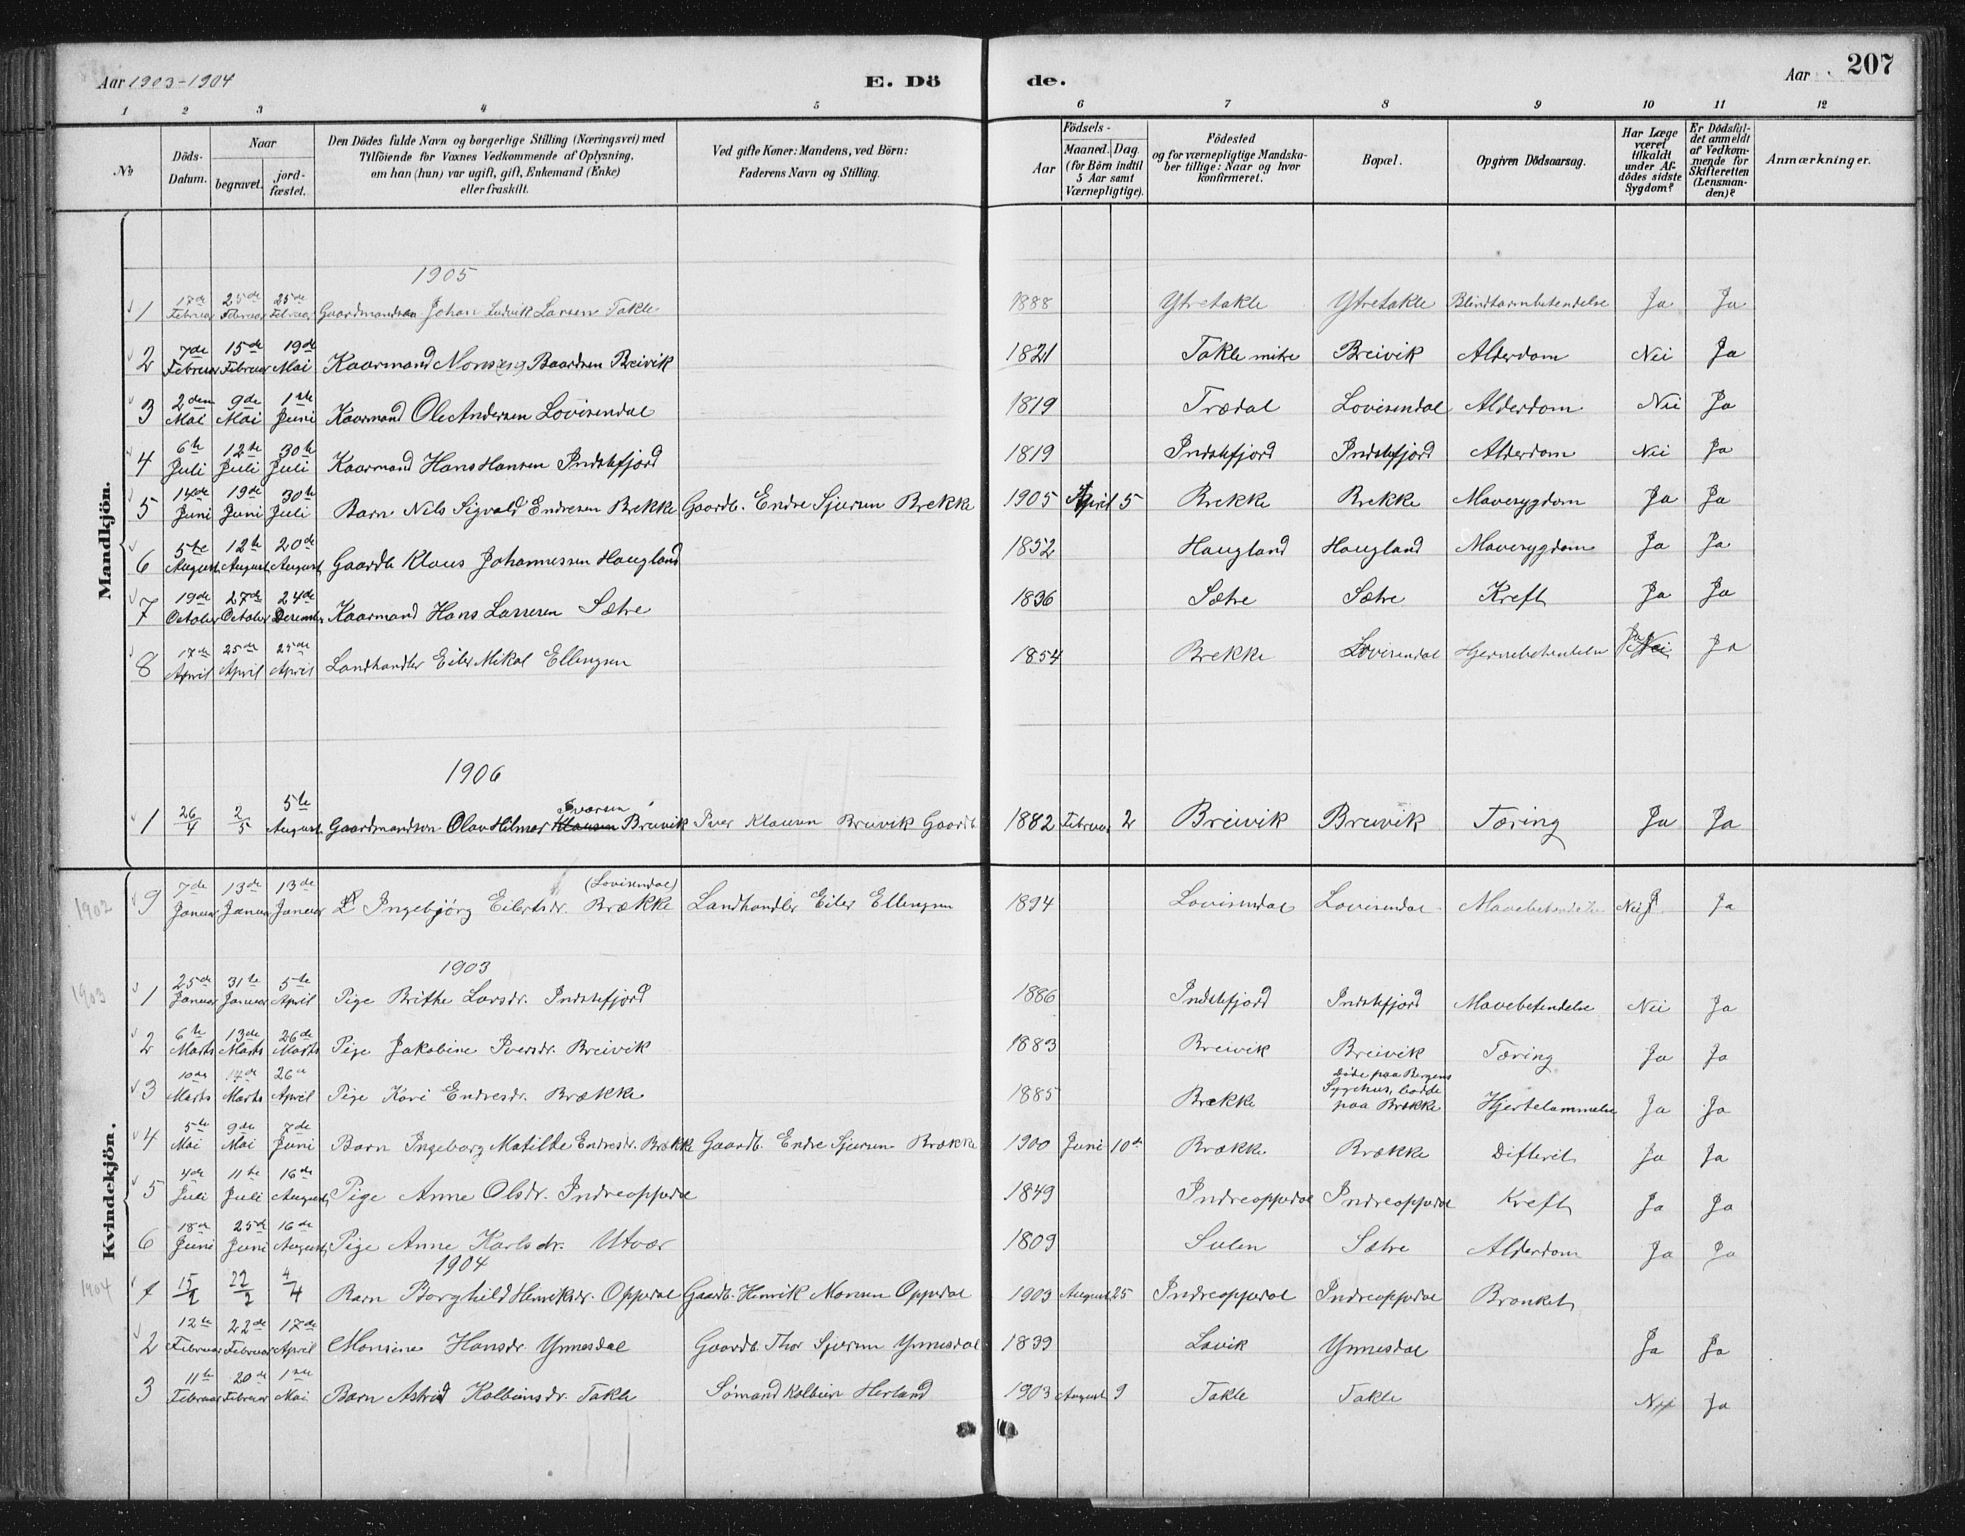 Aar 1903-1904 E. Dö de. Aar 207
1 2 3 4 5 6 7 8 9 10 11 12
No
Döds-Datum.
Naar
begravet.
jord-fæstet.
Den Dödes fulde Navn og borgerlige Stilling (Næringsvei) med
Tilföiende for Voxnes Vedkommende af Oplysning,
om han (hun) var ugift, gift, Enkemand (Enke)
eller fraskilt.
Ved gifte Koner: Mandens, ved Börn:
Faderens Navn og Stilling.
Födsels-
Aar
Maaned. Dag
(for Börn indtil
5 Aar samt
Værnepligtige).
Födested
og for værnepligtige Mandska-
ber tillige: Naar og hvor
konfirmeret.
Bopæl.
Opgiven Dödsaarsag.
Har Læge
været
tilkaldt
under Af-
dödes sidste
Sygdom?
Er Dödsfal-
det anmeldt
af Vedkom-
mende for
Skifteretten
(Lensman-
den)?
Anmærkninger.
Mandkjön.
1905
1 17de Februar 25de Februar 25de Februar Gaardmandssøn Johan Ludvik Larsen Takle 1888 Ytretakle Ytretakle Blindtarmbetendelse Ja Ja
2 7de Februar 15de Februar 19de Mai Kaarmand Mons Baardsen Breivik 1821 Takle mitre Breivik Alderdom Nei Ja
3 2den Mai 9de Mai 1ste Juni Kaarmand Ole Andersen Lovisendal 1819 Trædal Lovisendal Alderdom Nei Ja
4 6te Juli 12te Juli 30te Juli Kaarmand Hans Hansen Indstefjord 1819 Indstefjord Indstefjord Alderdom Nei Ja
5 14de Juni 19de Juni 30te Juli Barn Nils Sigvald Endresen Brekke Gaardb. Endre Sjursen Brekke 1905 April 5 Brekke Brekke Mavesygdom Ja Ja
6 5te August 12te August 20de August Gaardb. Klaus Johannessen Haugland 1852 Haugland Haugland Mavesygdom Ja Ja
7 19de October 27de October 24de December Kaarmand Hans Larsen Sætre 1836 Sætre Sætre Kreft Ja Ja
8 17de April 25de April 25de April Landhandler Eiler Mikal Ellingsen 1854 Brekke Lovisendal Hjernebetendelse Ja Nei Ja
1906
1 26/4 2/5 5te August Gaardmandssøn Olav Hilmar Klausen Ivarsen Breivik Iver Klausen Breivik Gaardb. 1882 Februar 2 Breivik Breivik Tæring Ja Ja
Kvindekjön.
1902 9 7de Januar 13de Januar 13de Januar Ingebjörg Eilertsdr. Brække (Lovisendal) Landhandler Eiler Ellingsen 1894 Lovisendal Lovisendal Mavebetendelse Nei Ja
1903
1903 1 25de Januar 31te Januar 5te April Pige Brithe Larsdr. Indstefjord 1886 Indstefjord Indstefjord Mavebetendelse Nei Ja
2 6te Marts 13de Marts 26de Marts Pige Jakobine Iversdr. Breivik 1883 Breivik Breivik Tæring Ja Ja
3 10de Marts 14de Marts 26de April Pige Kari Endresdr. Brække 1885 Brekke Døde paa Bergens Sygehus, bodde paa Brekke Hjertelammelse Ja Ja
4 5te Mai 9de Mai 7de Juni Barn Ingeborg Matilde Endresdr. Brække Gaardb. Endre Sjursen Brække 1900 Juni 10de Brække Brække Difterit Ja Ja
5 4de Juli 11te Juli 16de August Pige Anne Olsdr. Indreoppedal 1849 Indreoppedal Indreoppedal Kreft Ja Ja
6 18de Juni 25de Juni 16de August Pige Anne Karlsdr. Utvær 1809 Sulen Sætre Alderdom Ja Ja
1904
1904 1 15/2 22/2 4/4 Barn Borghild Henriksdr. Oppedal Gaardb. Henrik Monsen Oppedal 1903 August 25 Indreoppedal Indreoppedal Bronket
2 12te Februar 22de Februar 17de April Monsine Hansdr. Ynnesdal Gaardb. Thor Sjursen Ynnesdal 1839 Lavik Ynnesdal Ja Ja
3 11te Februar 20de Februar 1ste Mai Barn Astrid Kolbeinsdr. Takle Sømand Kolbein Herland 1903 August 9 Takle Takle Nei Ja